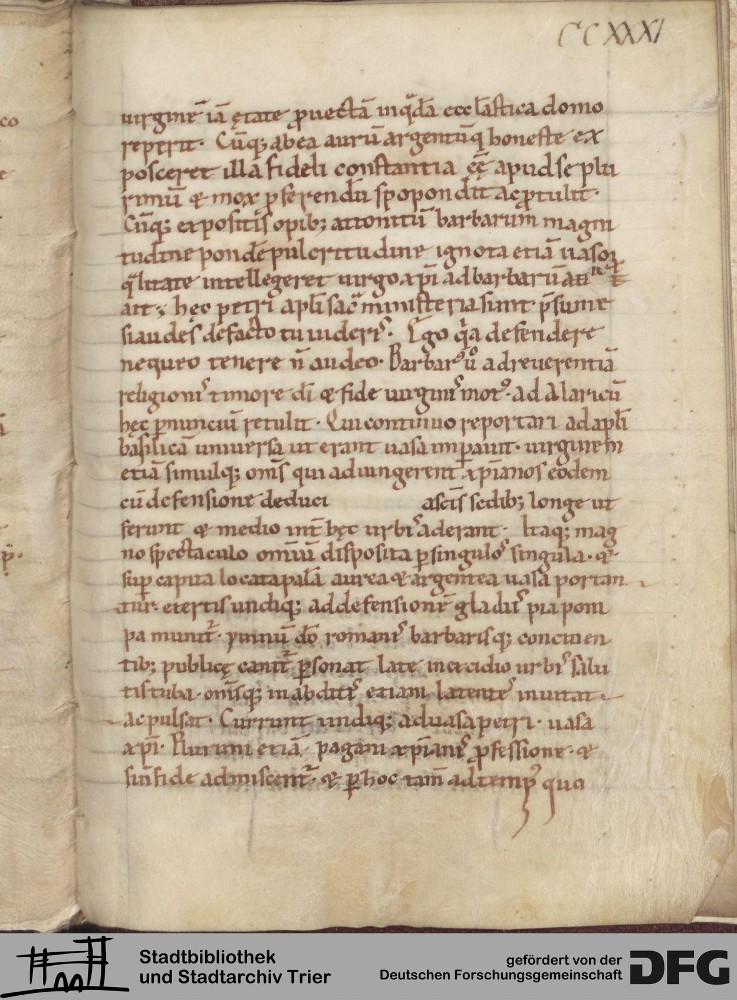 CCXXXI
uirginē iā ętate ꝓuectā inq̄dā ecclastica domo
repperit. Cūq; abea aurū argentūq honeste ex
posceret illa fideli constantia eę̄ apudse plu
rimū & mox ꝓferendū spopondit ac ꝓtulit.
Cūq; expositis opib; attonitū barbarum magni
tudine pondē pulcritudine ignota etiā uasoꝝ
q̄litate intellegeret uirgo xp̄i ad barbarū
ait; hęc petri apli sacͣ ministeria sunt p̄sume
siaudes defacto tu uideris. Ego q̄a defendere
nequeo tenere n̄ audeo. Barbarꝰ uͦ adreuerentiā
religionis timore dī & fide uirginis motꝰ. ad Alaricū
hęc p̱nunciū retulit. Qui continuo reportari ad apli
basilicā uniuersa ut erant uasa imꝑauit. uirginem
etiā simulq; om̄s qui adiungerent xp̄ianos eodem
cū defensione deduci ascīs sedib; longe ut
ferunt & medio int̄ hęc urbis aderant. Itaq; mag
no spectaculo omniū disposita ꝑsingulos singula. &
sup̄ capita locata palā aurea & argentea uasa portan
tur. exertis undiq; addefensionē gladiis pia pom
pa munit̄. ymnū dō romanis barbarisq; concinen
tib; publicę canit̄ ꝑsonat late inexcidio urbis salu
tis tuba. om̄sq; inabditis etiam latentes inuitat
ac pulsat. Currunt undiq; aduasa petri. uasa
xp̄i. Plurimi etiā pagani xp̄ianis ꝓfessione. &
siñ fide admiscent̄. & ꝑ hoc tam̄ adtemp̱ quo
co
p̄.
Stadtbibliothek
und Stadtarchiv Trier
gefördert von der
Deutschen Forschungsgemeinschaft
DFG